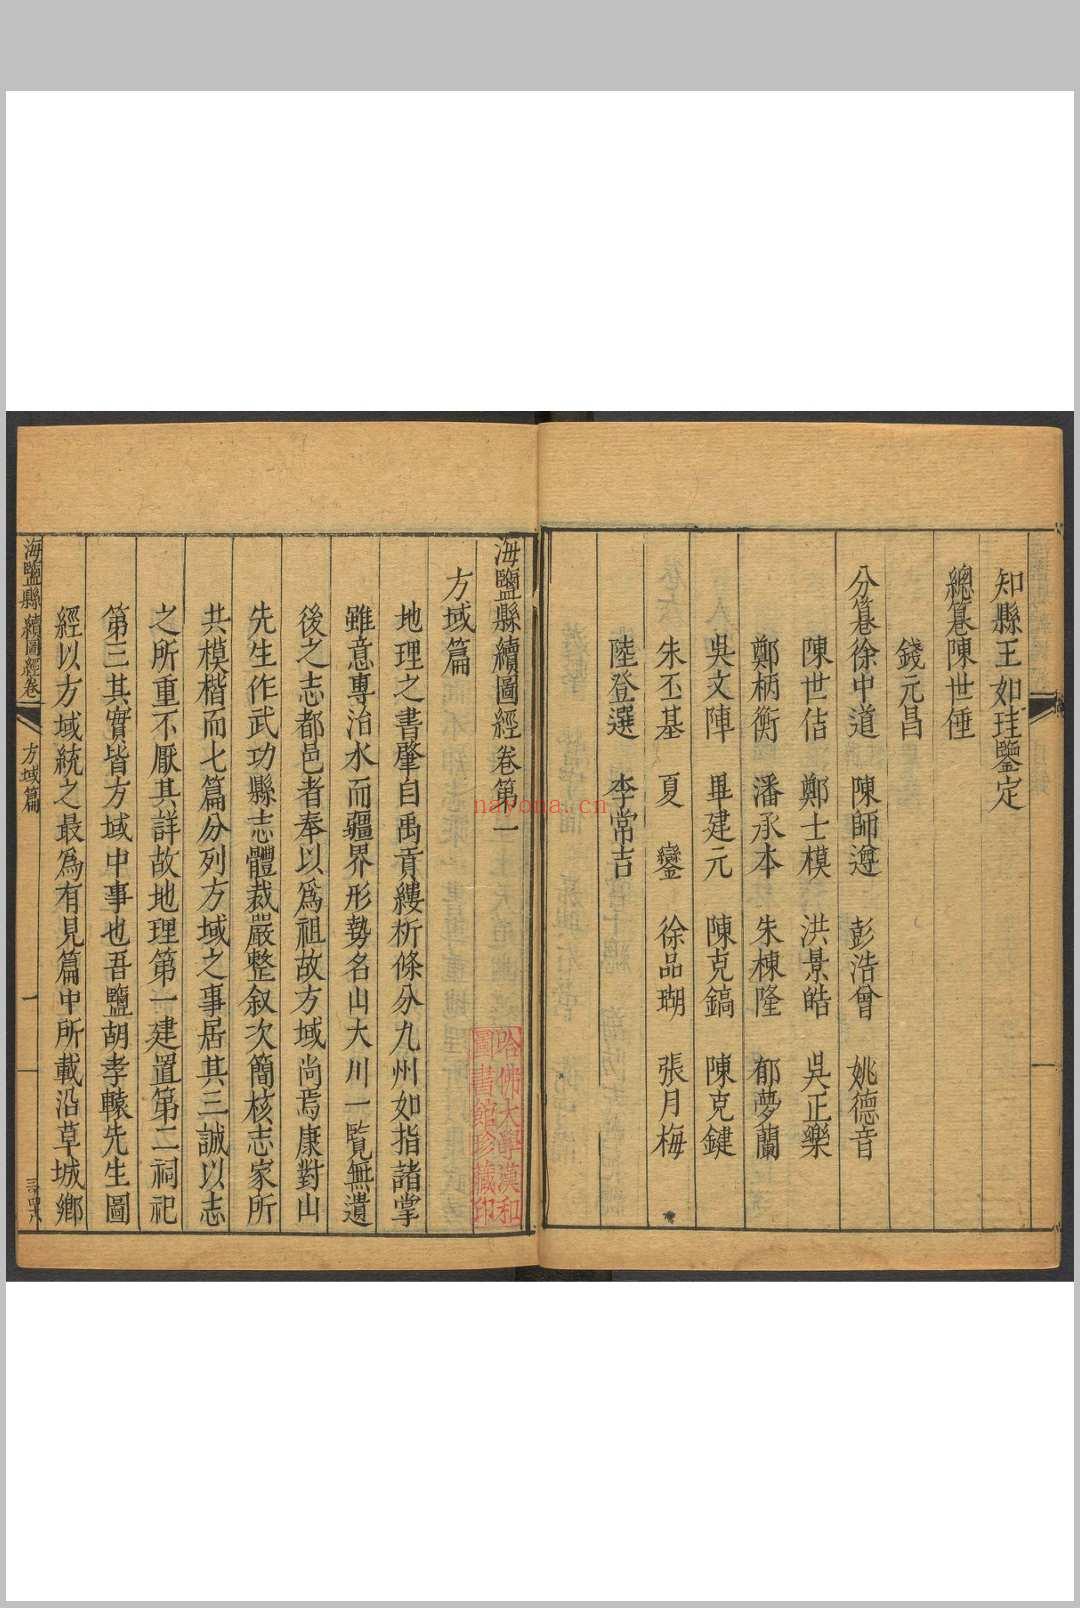 知縣王如珪鑒定
總纂陳世倕
錢元昌
分纂徐中道 陳師遵 彭浩曾 姚德音
陳世佶 鄭士模 洪景皓 吳正樂
鄭柄衡 潘承本 朱棟隆 郁夢蘭
吳文陣 畢建元 陳克鎬 陳克鍵
朱丕基 夏鑾 徐品瑚 張月梅
陸登選 李常吉
海鹽縣續圖經卷第一
方域篇
地理之書肇自禹貢縷析條分九州如指諸掌
雖意專治水而疆界形勢名山大川一覽無遺
後之志都邑者奉以爲祖故方域尚焉康對山
先生作武功縣志體裁嚴整叙次簡核志家所
共模楷而七篇分列方域之事居其三誠以志
之所重不厭其詳故地理第一建置第二祠祀
第三其實皆方域中事也吾鹽胡孝轅先生圖
經以方域統之最爲有見篇中所載沿革城鄉
海鹽縣續圖經卷一 方域篇 一
哈佛大學漢和
圖書館珍藏印
nayona.cn